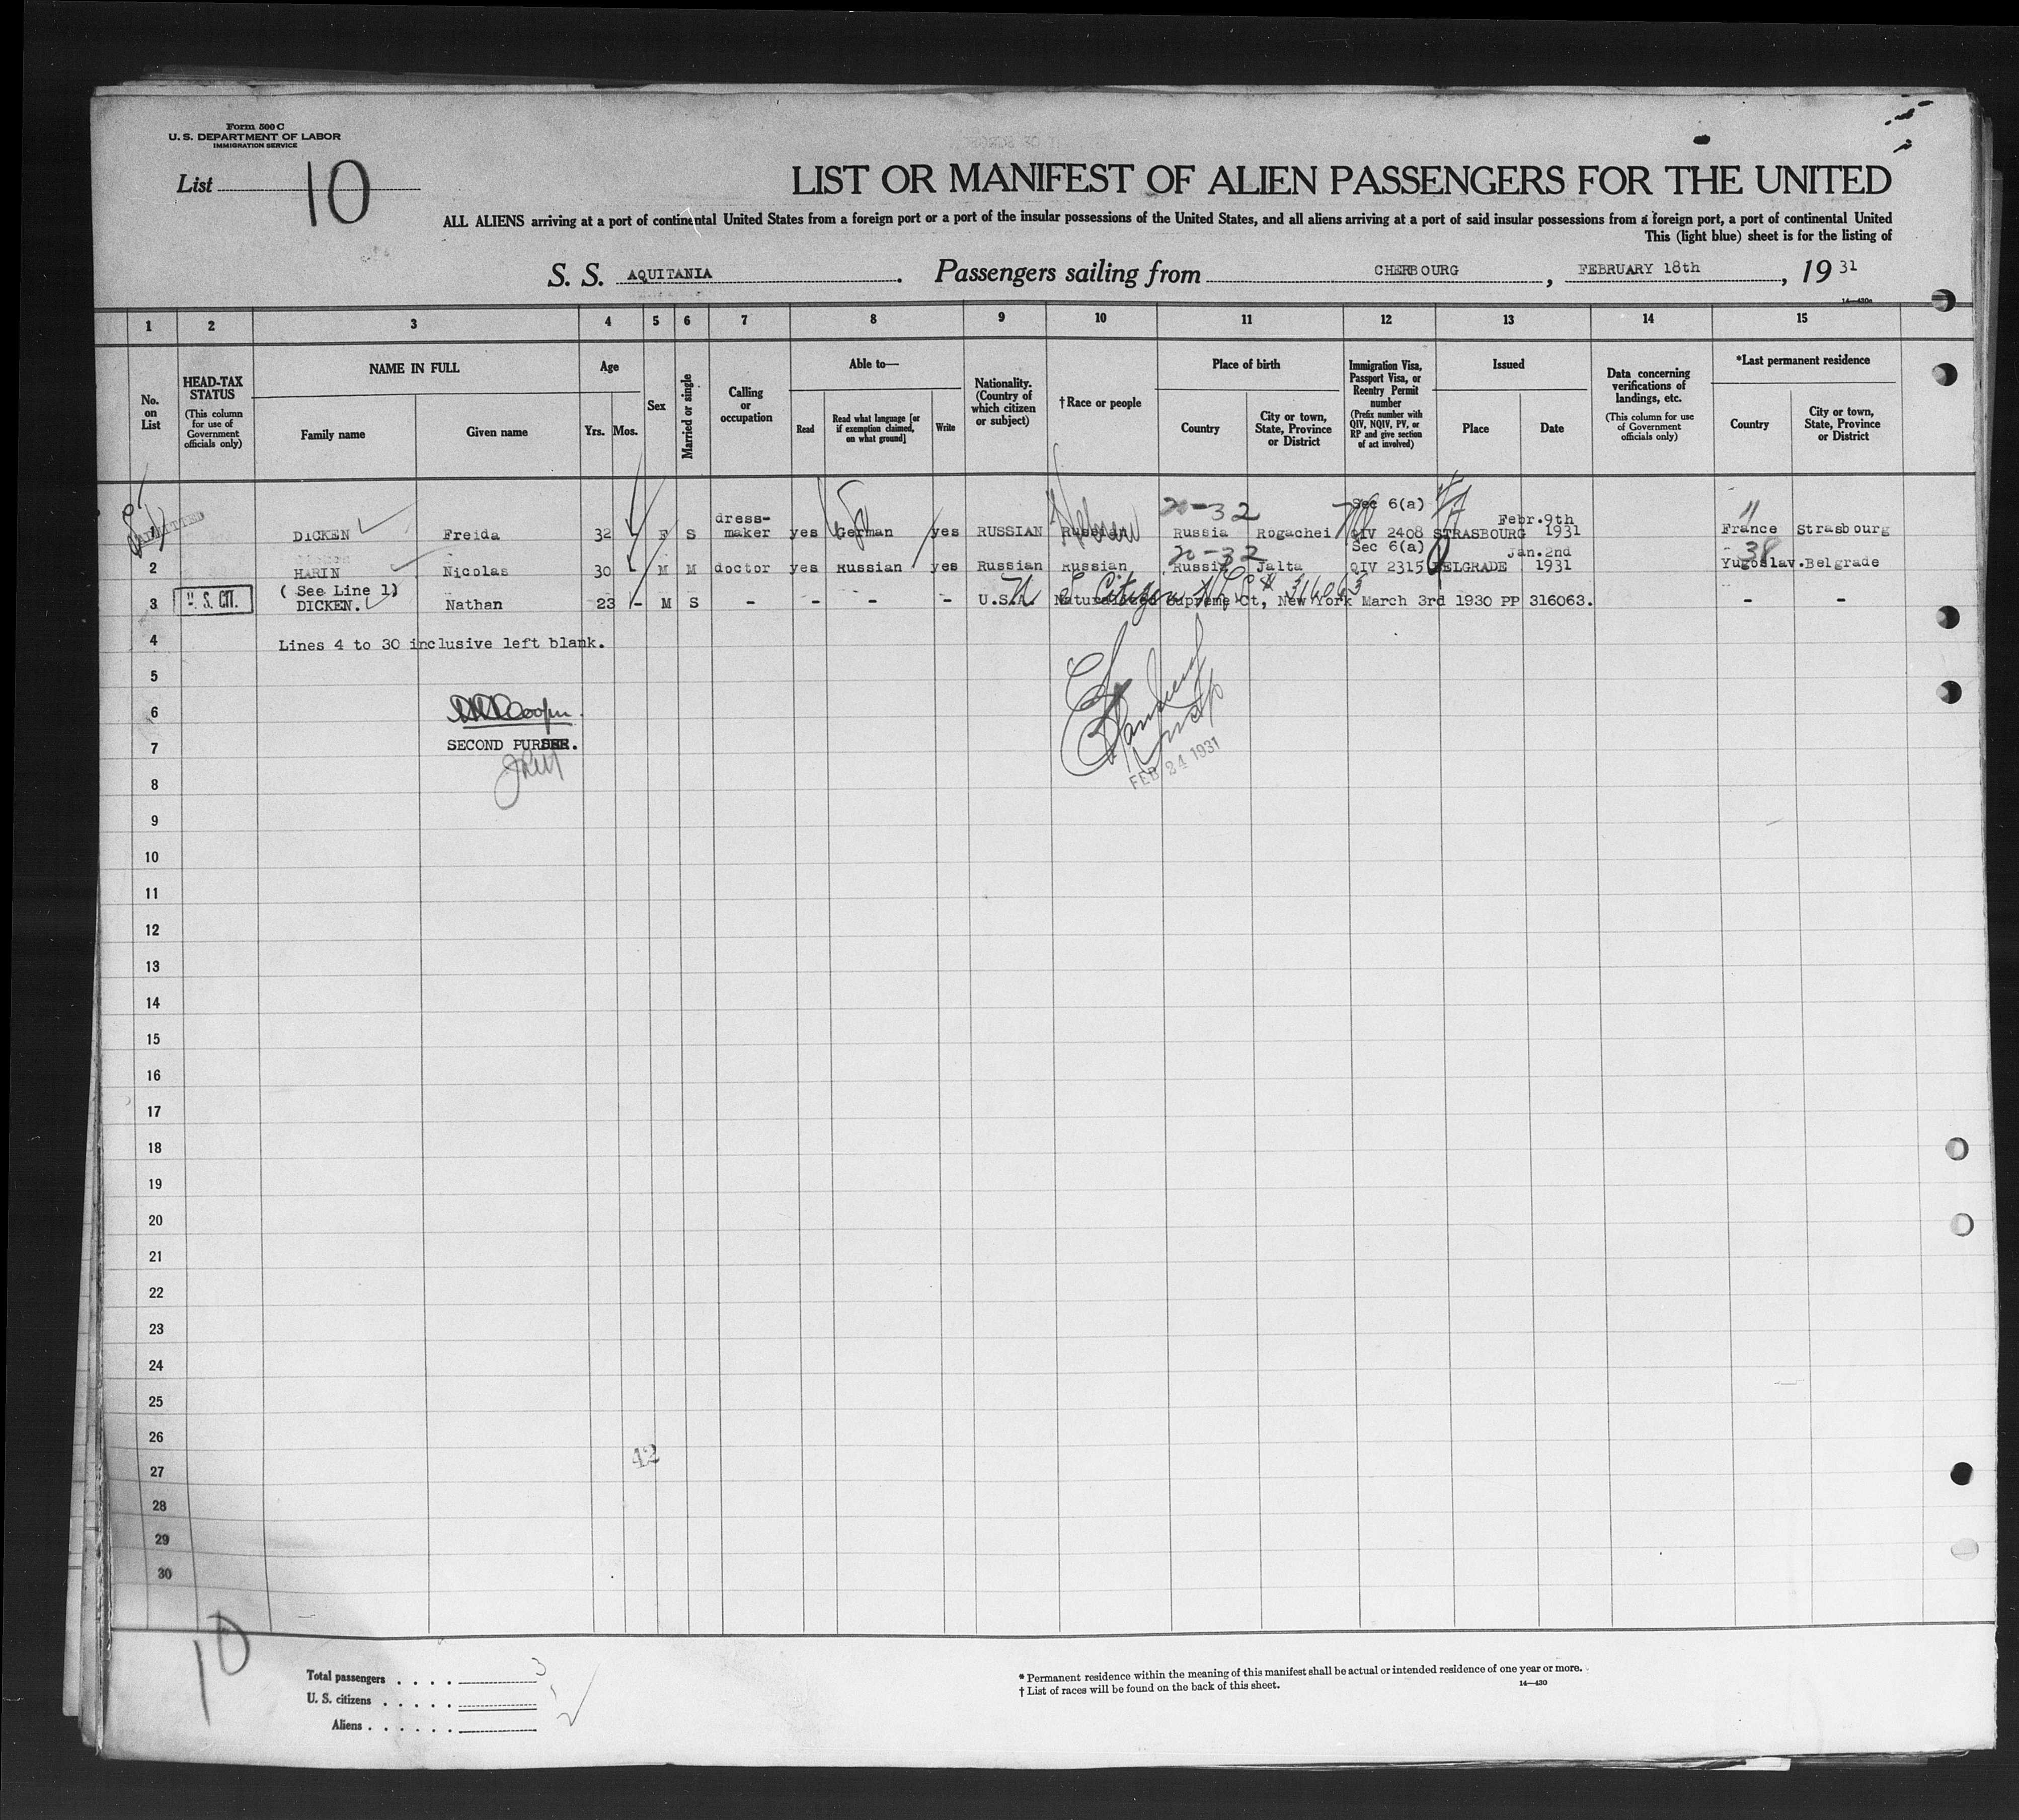 Form 500 C
U. S. DEPARTMENT OF LABOR
IMMIGRATION SERVICE
List 10
LIST OR MANIFEST OF ALIEN PASSENGERS FOR THE UNITED
ALL ALIENS arriving at a port of continental United States from a foreign port or a port of the insular possessions of the United States, and all aliens arriving at a port of said insular possessions from a foreign port, a port of continental United
This (light blue) sheet is for the listing of
S. S. AQUITANIA. Passengers sailing from CHERBOURG, FEBRUARY 18th, 19 31
14—430a
1 2 3 4 5 6 7 8 9 10 11 12 13 14 15
No. on List
HEAD-TAX STATUS (This column for use of Government officials only)
NAME IN FULL
Family name
Given name
Age
Yrs. Mos.
Sex
Married or single
Calling or occupation
Able to—
Read
Read what language [or if exemption claimed, on what ground]
Write
Nationality. (Country of which citizen or subject)
† Race or people
Place of birth
Country
City or town, State, Province or District
Immigration Visa, Passport Visa, or Reentry Permit number (Prefix number with QIV, NQIV, PV, or RP and give section of act involved)
Issued
Place
Date
Data concerning verifications of landings, etc. (This column for use of Government officials only)
*Last permanent residence
Country
City or town, State, Province or District
20-32 Sec 6(a) 11
ADMITTED
1 DICKEN Freida 32 F S dress-maker yes German yes RUSSIAN Russian Hebrew Russia Rogachei QIV 2408 STRASBOURG Febr.9th 1931 France Strasbourg
20-32 Sec 6(a) 38
2 HARIN Nicolas 30 M M doctor yes Russian yes Russian Russian Russia Jalta QIV 2315 BELGRADE Jan.2nd 1931 Yugoslav. Belgrade
( See Line 1)
3 U. S. CIT. DICKEN. Nathan 23 - M S - - - - U.S.A. Naturalized Supreme Ct, New York March 3rd 1930 PP 316063. - -
Citizen 316063
4 Lines 4 to 30 inclusive left blank.
5
6 Cooper
7 SECOND PURSER.
FEB 24 1931
8
9
10
11
12
13
14
15
16
17
18
19
20
21
22
23
24
25
26
42
27
28
29
30
10
Total passengers . . . . 3
U. S. citizens . . . . . 1
Aliens . . . . . .
* Permanent residence within the meaning of this manifest shall be actual or intended residence of one year or more.
† List of races will be found on the back of this sheet.
14—430